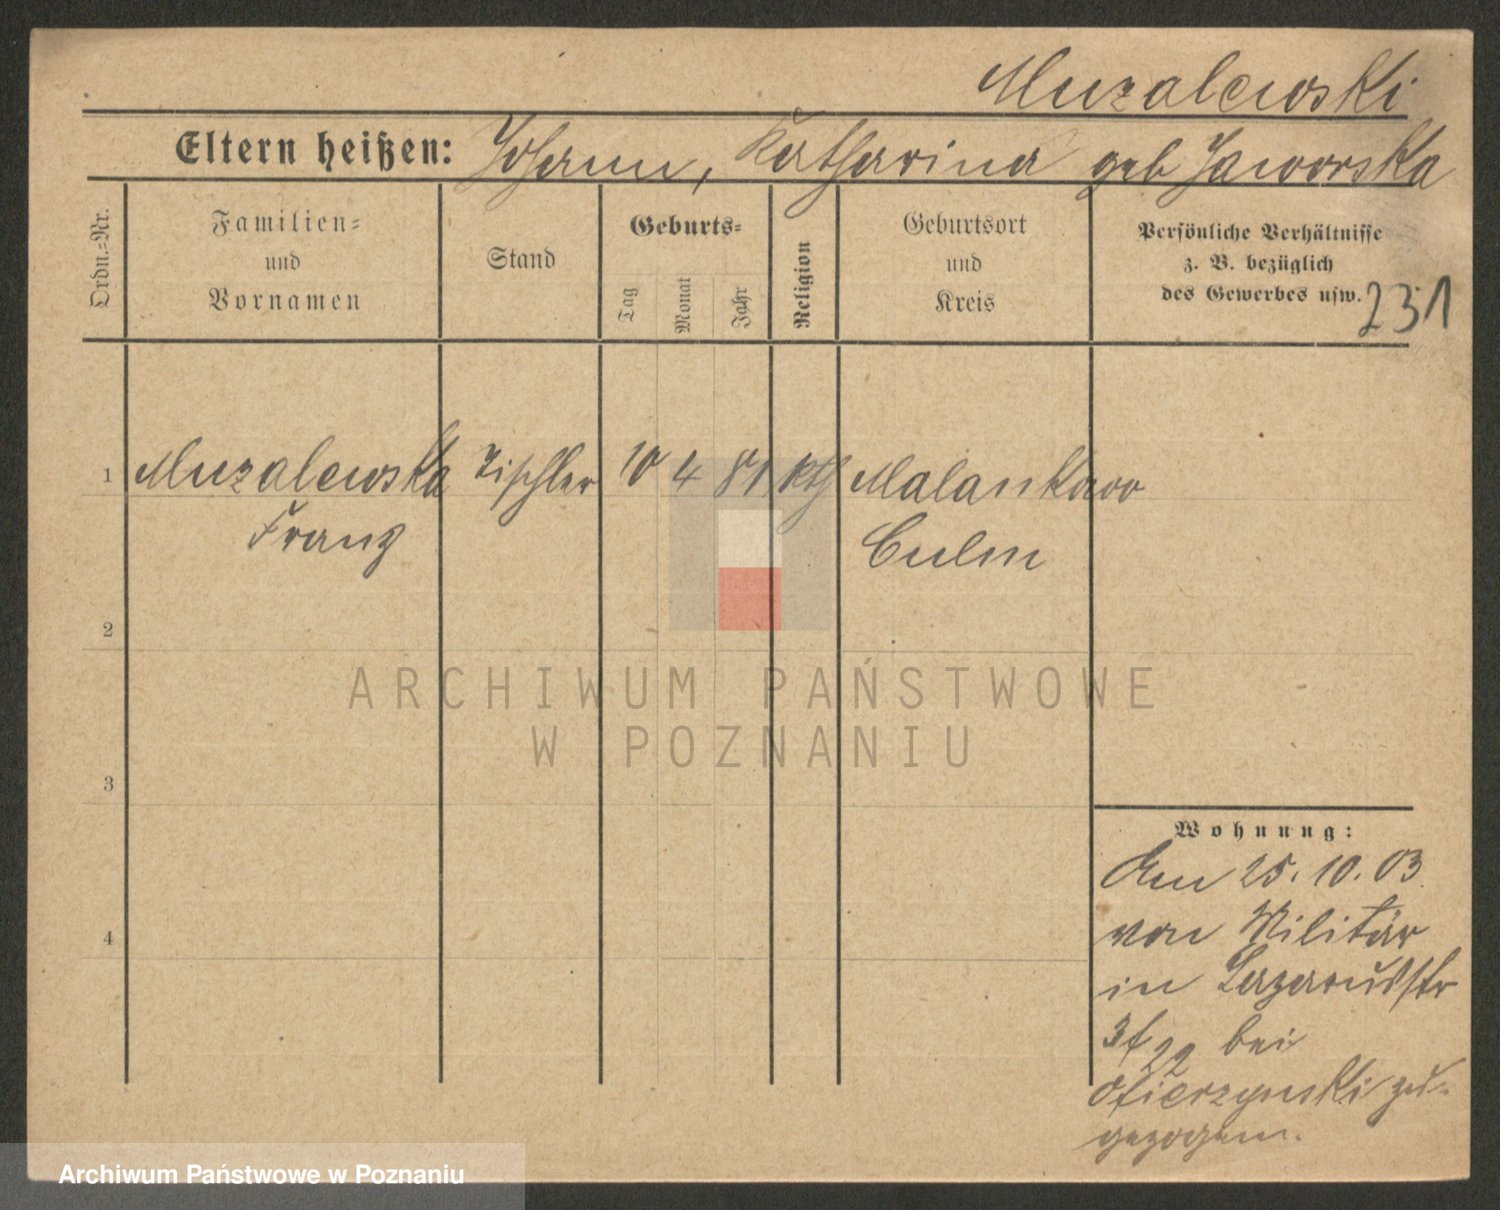 Muzalewski
Eltern heißen: Johann, Katharina geb Jaworska
Ordn.=Nr.
Familien=
und
Vornamen
Stand
Geburts=
Tag
Monat
Jahr
Religion
Geburtsort
und
Kreis
Persönliche Verhältnisse
z. B. bezüglich
des Gewerbes usw.
231
1 Muzalewska Tischler 10 4 81 kth Malankowo
Franz Culm
2
ARCHIWUM PAŃSTWOWE
W POZNANIU
3
Wohnung:
Am 25. 10. 03
von Militär
4
in Lazarusstr
22 bei
zu-
gezogen.
Archiwum Państwowe w Poznaniu